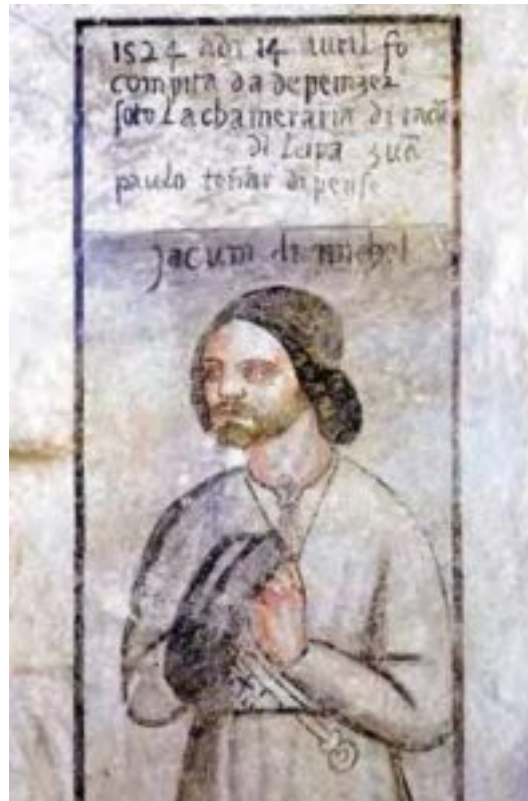 1524 adi 14 auril fo
compita da depenzer
soto La chameraria di
di Luva zuā
paulo di pense
jacum di michel